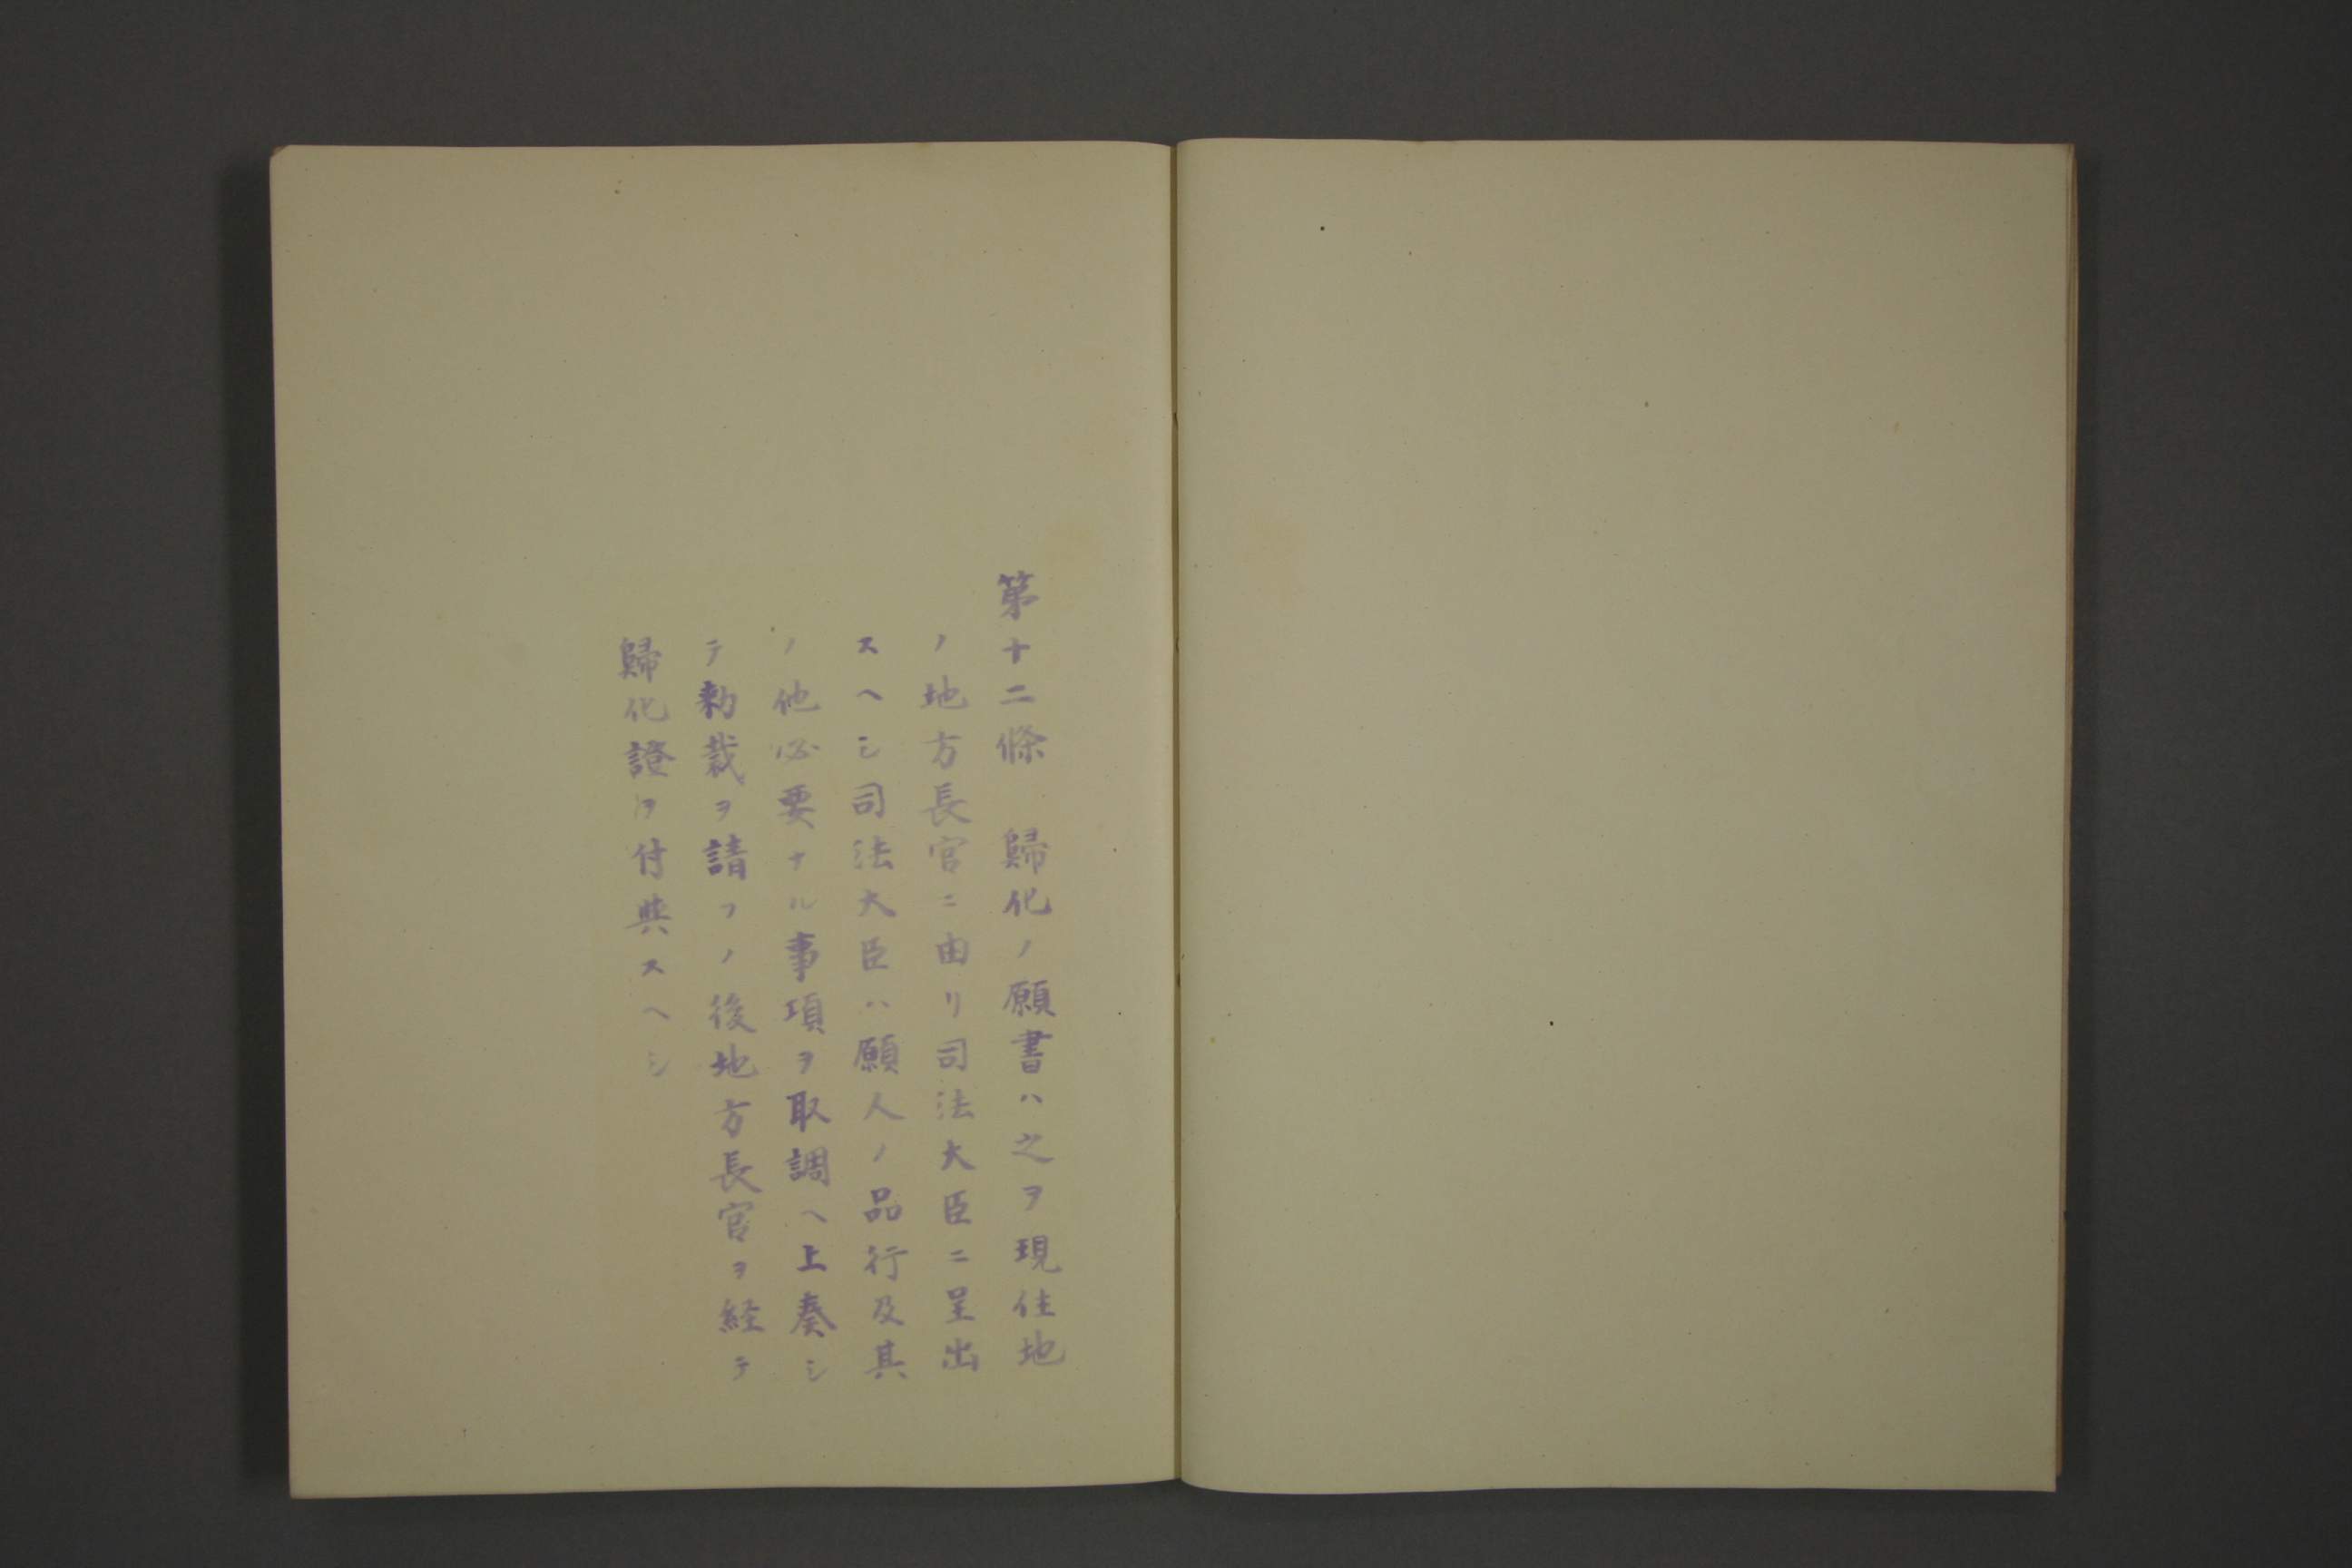 第十二條　歸化ノ願書ハ之ヲ現住地
ノ地方長官ニ由リ司法大臣ニ呈出
スヘシ司法大臣ハ願人ノ品行及其
ノ他必要ナル事項ヲ取調ヘ上奏シ
テ勅裁ヲ請フノ後地方長官ヲ経テ
歸化證ヲ付與スヘシ